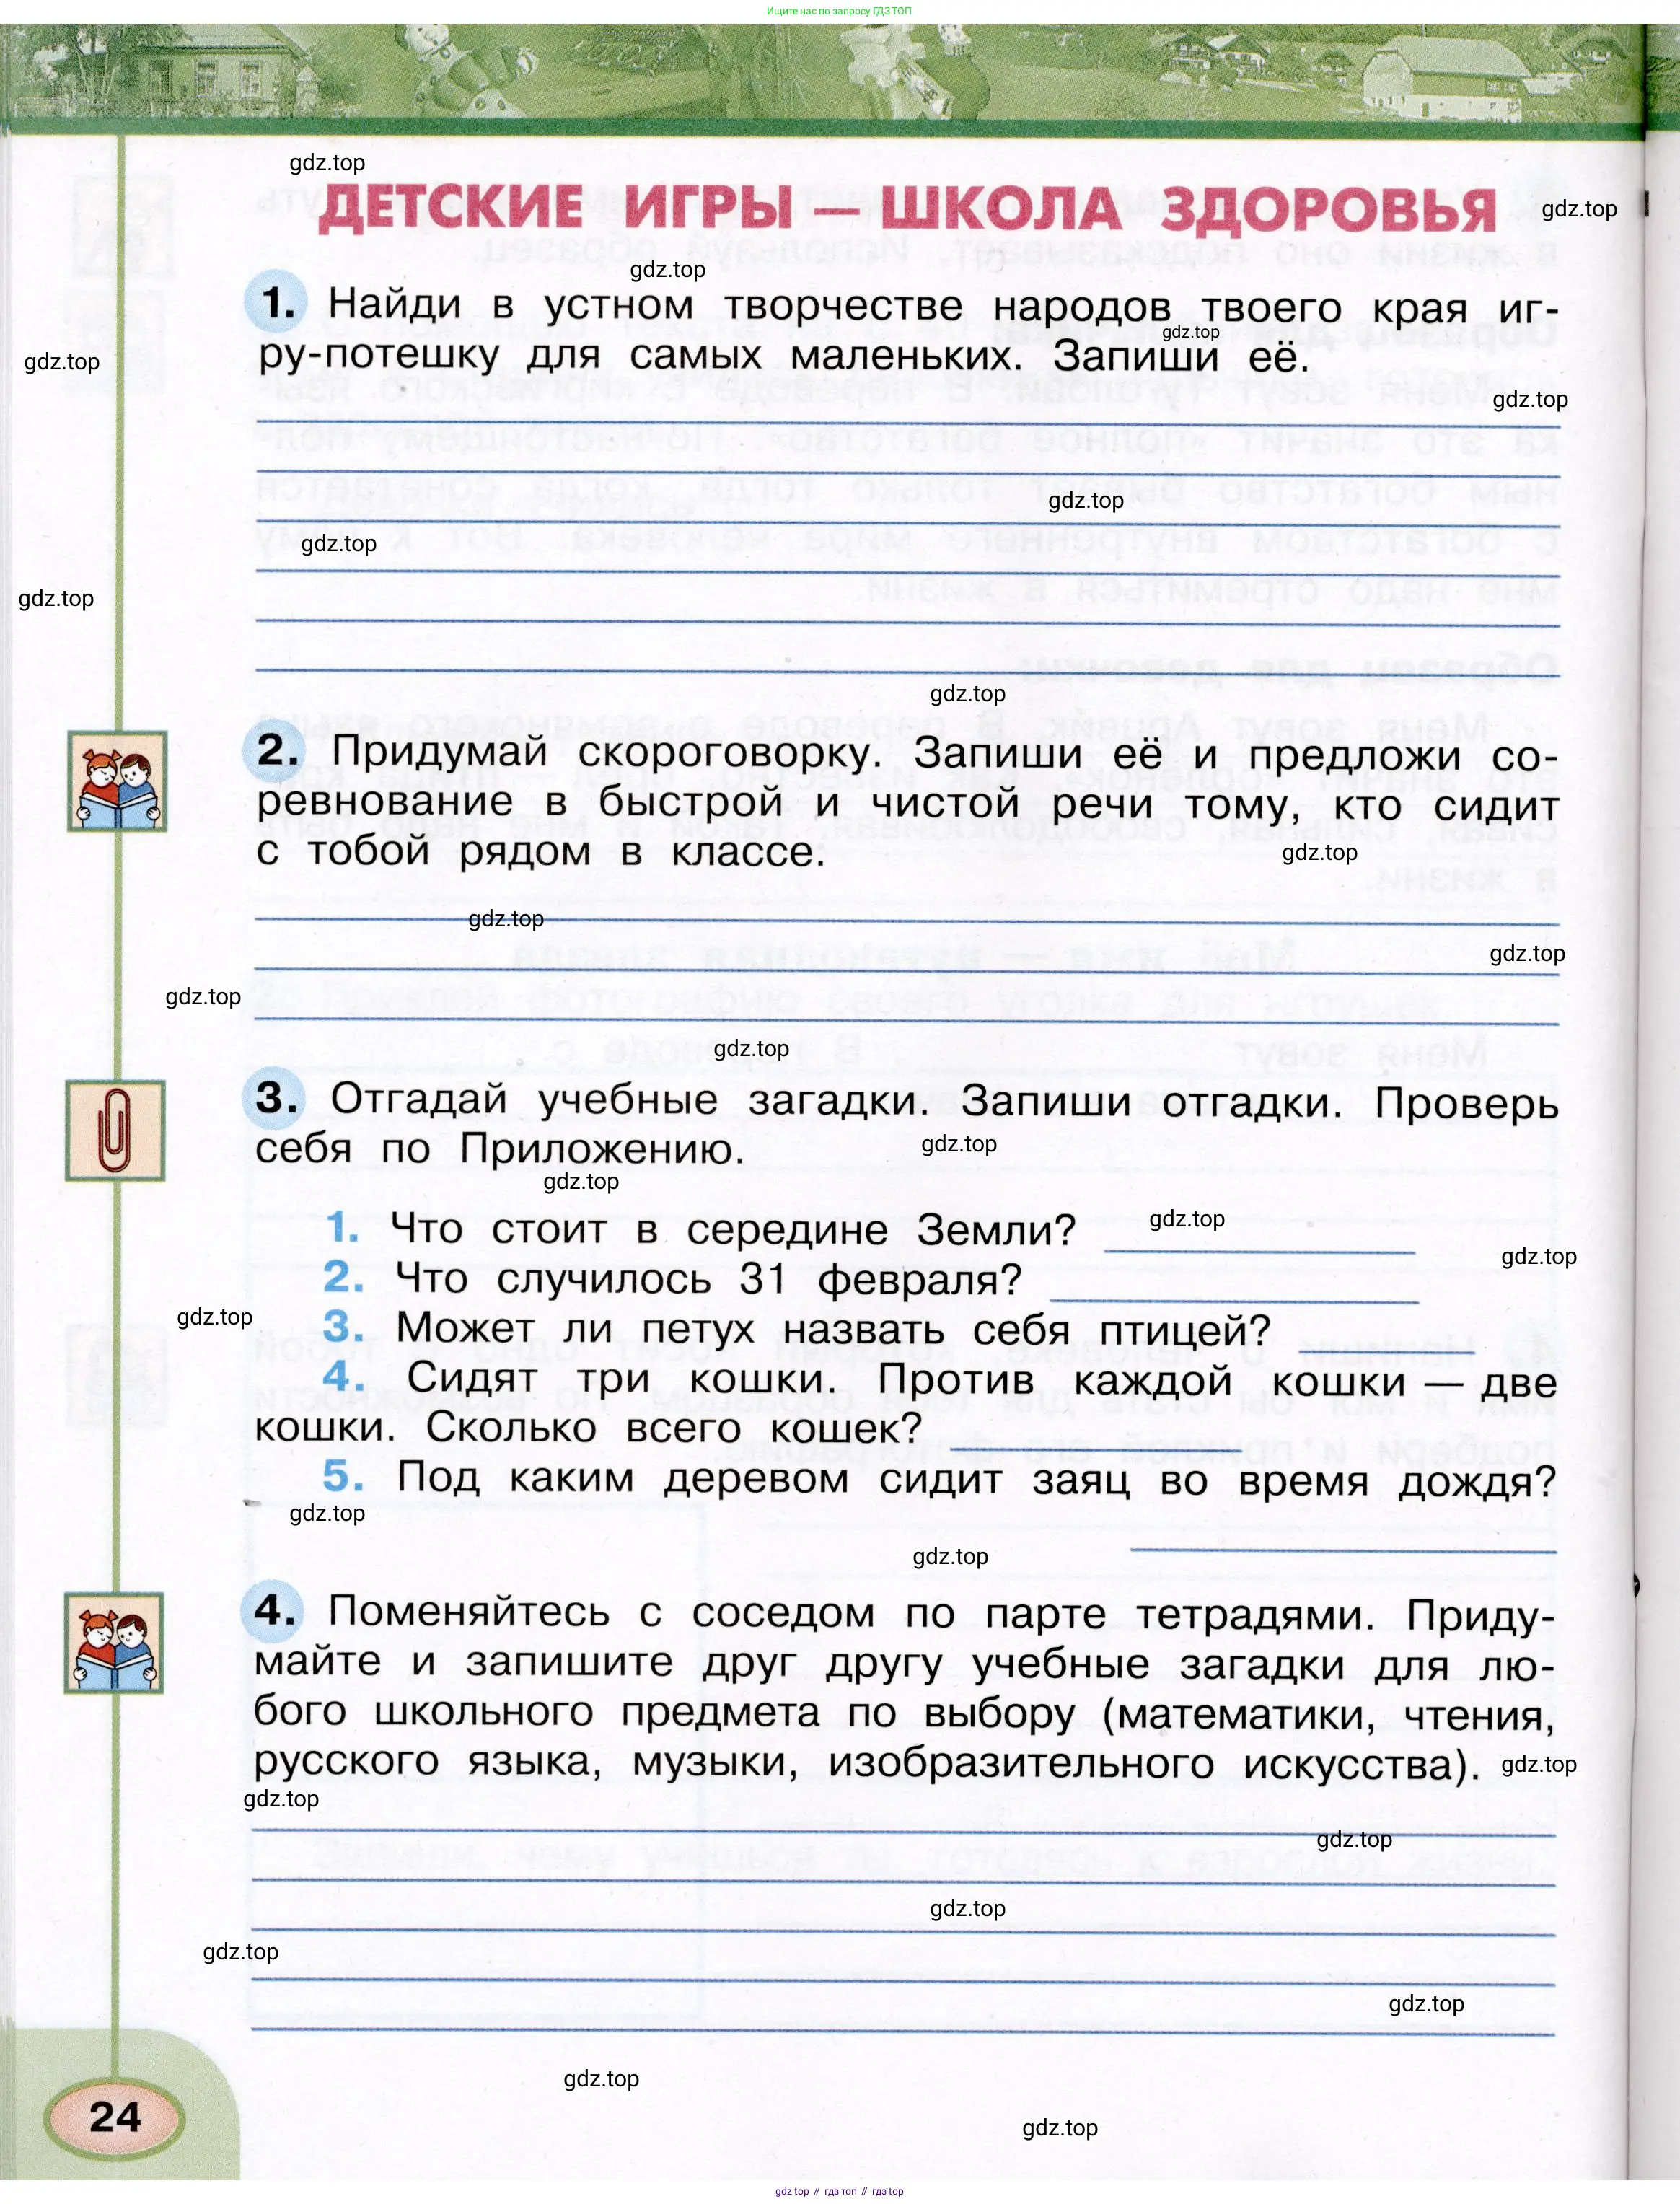 Ищите нас по запросу ГДЗ ТОП
gdz.top
ДЕТСКИЕ ИГРЫ — ШКОЛА ЗДОРОВЬЯ
gdz.top
gdz.top
1. Найди в устном творчестве народов твоего края иг-
gdz.top
ру-потешку для самых маленьких. Запиши её.
gdz.top
gdz.top
gdz.top
gdz.top
gdz.top
gdz.top
2. Придумай скороговорку. Запиши её и предложи со-
ревнование в быстрой и чистой речи тому, кто сидит
с тобой рядом в классе.
gdz.top
gdz.top
gdz.top
gdz.top
gdz.top
3. Отгадай учебные загадки. Запиши отгадки. Проверь
себя по Приложению.
gdz.top
gdz.top
1. Что стоит в середине Земли?
gdz.top
gdz.top
2. Что случилось 31 февраля?
gdz.top
3. Может ли петух назвать себя птицей?
4. Сидят три кошки. Против каждой кошки — две
кошки. Сколько всего кошек?
5. Под каким деревом сидит заяц во время дождя?
gdz.top
gdz.top
4. Поменяйтесь с соседом по парте тетрадями. Приду-
майте и запишите друг другу учебные загадки для лю-
бого школьного предмета по выбору (математики, чтения,
русского языка, музыки, изобразительного искусства).
gdz.top
gdz.top
gdz.top
gdz.top
gdz.top
gdz.top
gdz.top
24
gdz.top
gdz top // гдз топ // гдз top